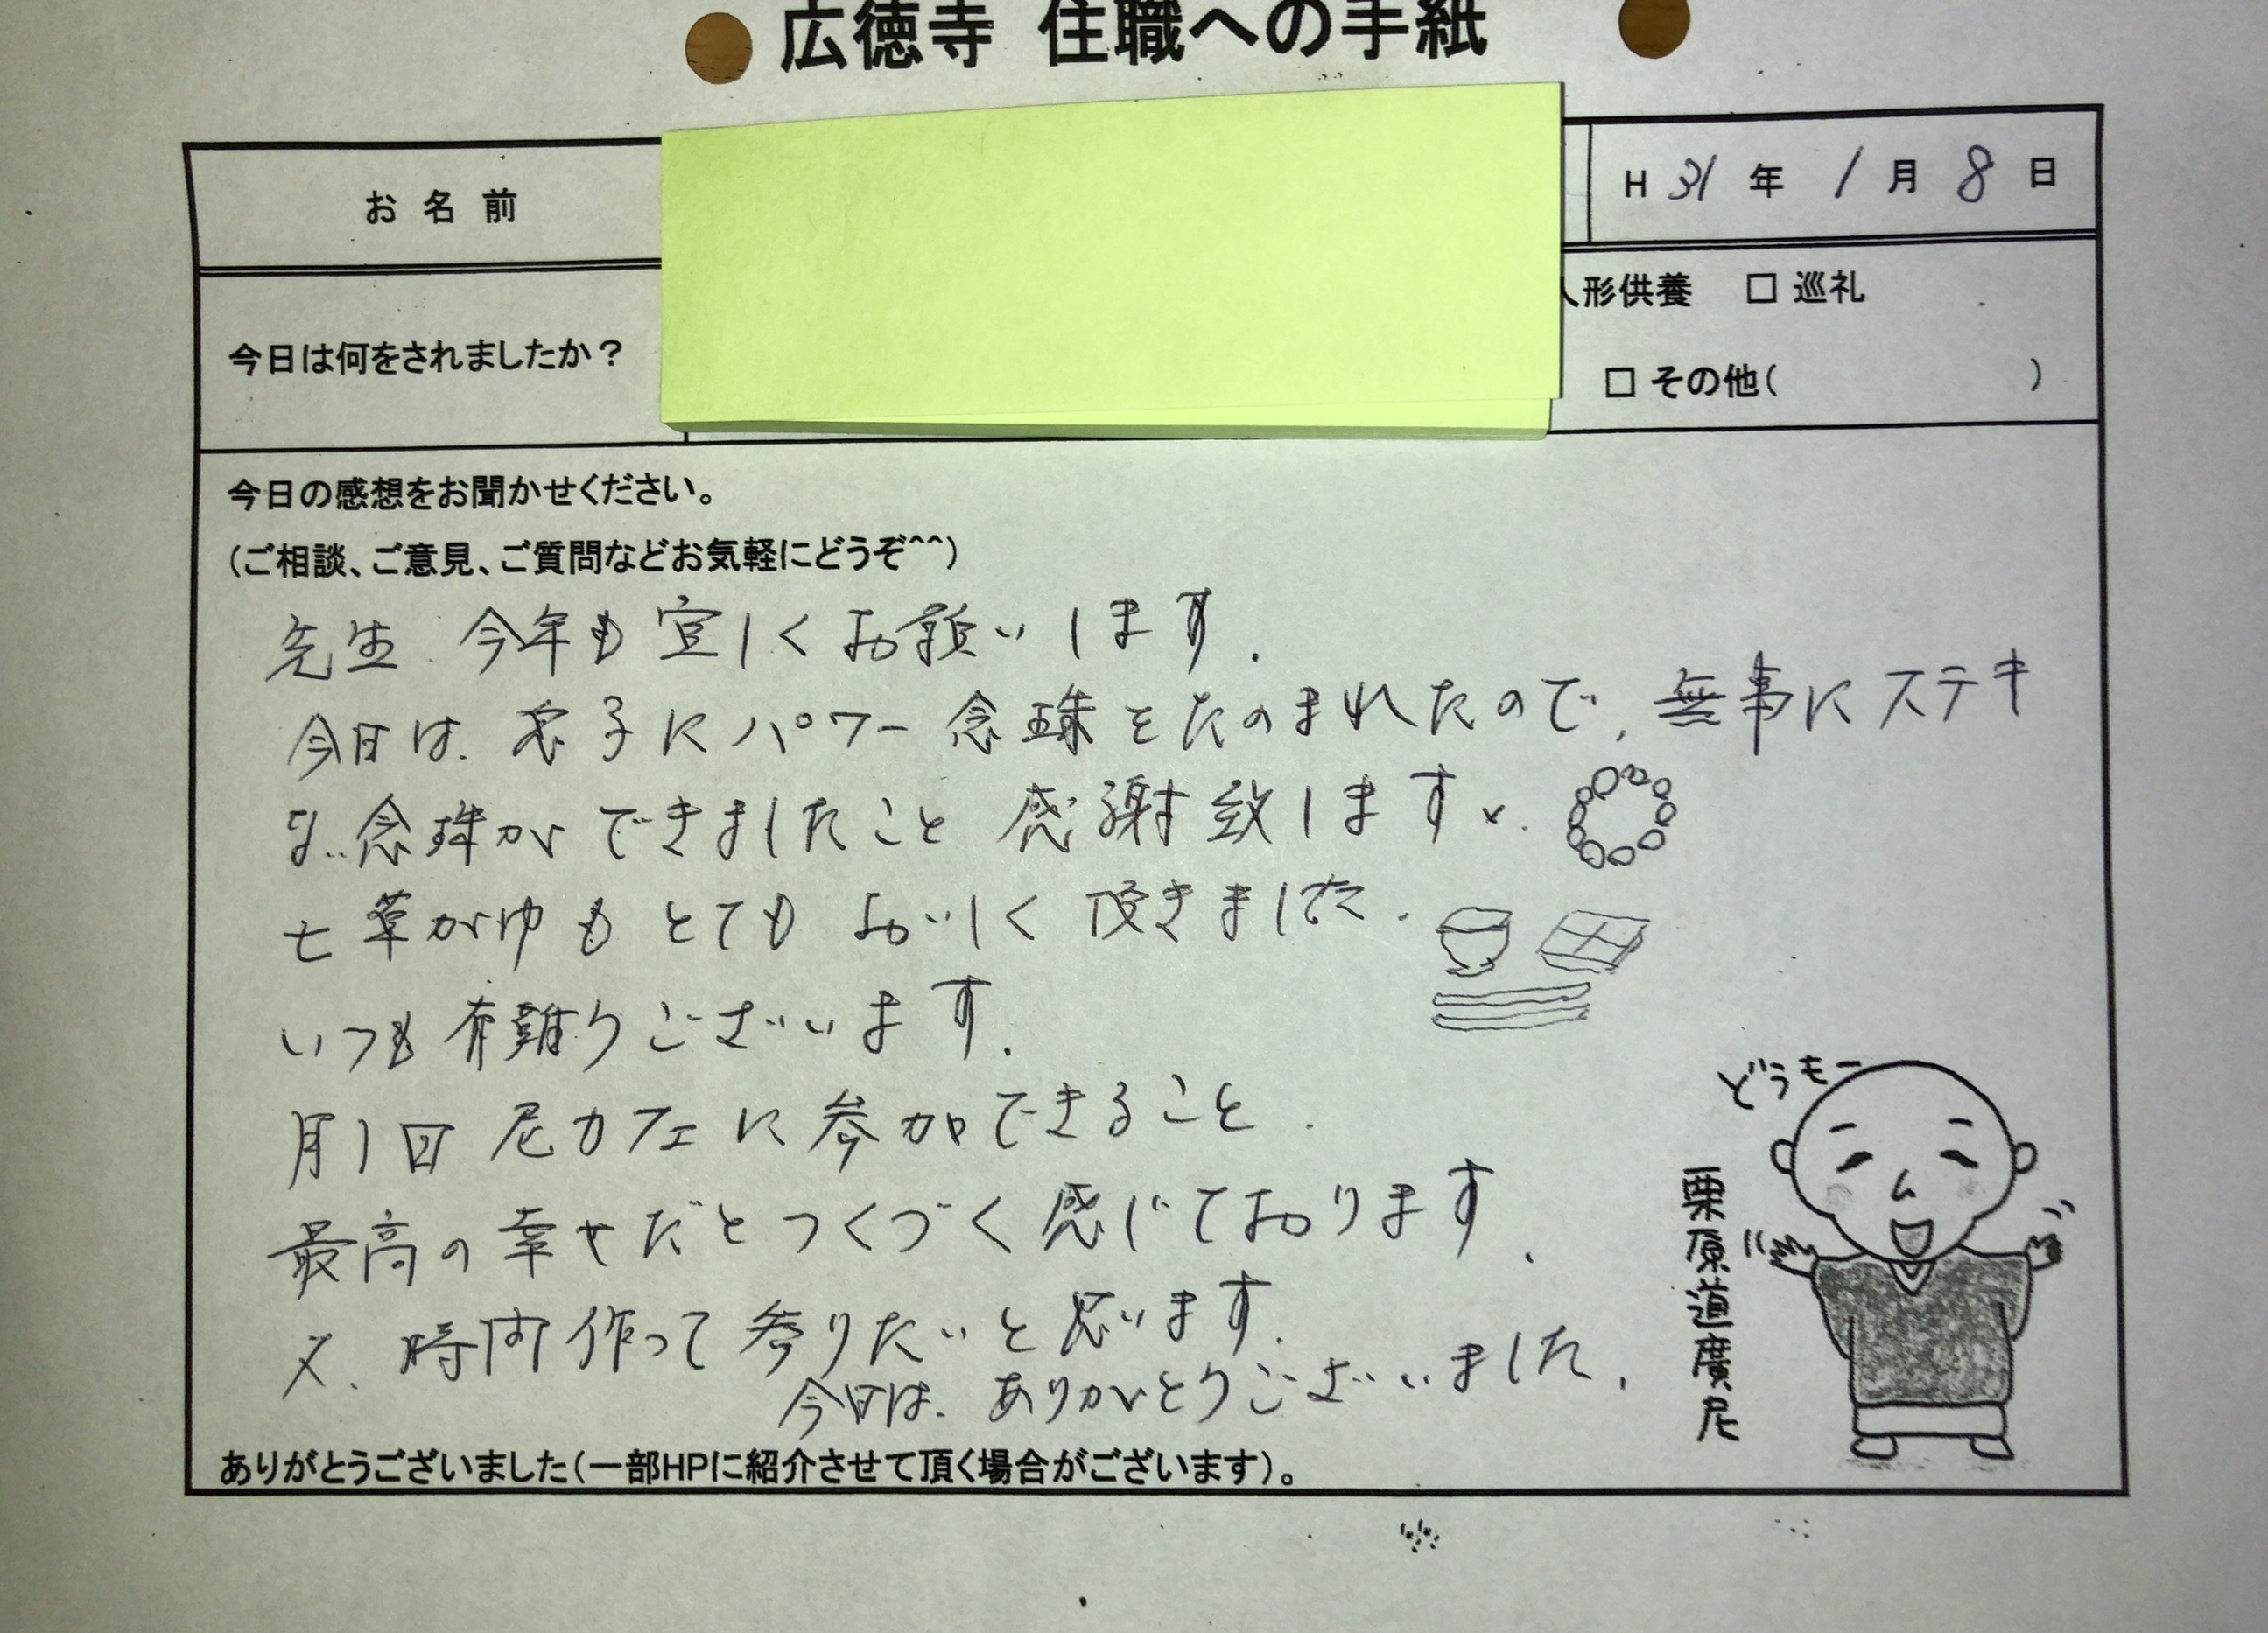 広徳寺 住職への手紙
お名前
H 31 年 1 月 8 日
今日は何をされましたか？
形供養 □ 巡礼
□ その他( )
今日の感想をお聞かせください。
(ご相談、ご意見、ご質問などお気軽にどうぞ^^)
先生.今年も宜しくお願いします.
今日は.息子にパワー念珠をたのまれたので,無事にステキ
な..念珠ができましたこと感謝致します.
七草がゆもとてもおいしく頂きました.
いつも有難うございます.
月1回尼カフェに参加できること.
最高の幸せだとつくづく感じております.
又.時間作って参りたいと思います.
今日は.ありがとうございました.
どうもー
栗原道廣尼
ありがとうございました(一部HPに紹介させて頂く場合がございます)。